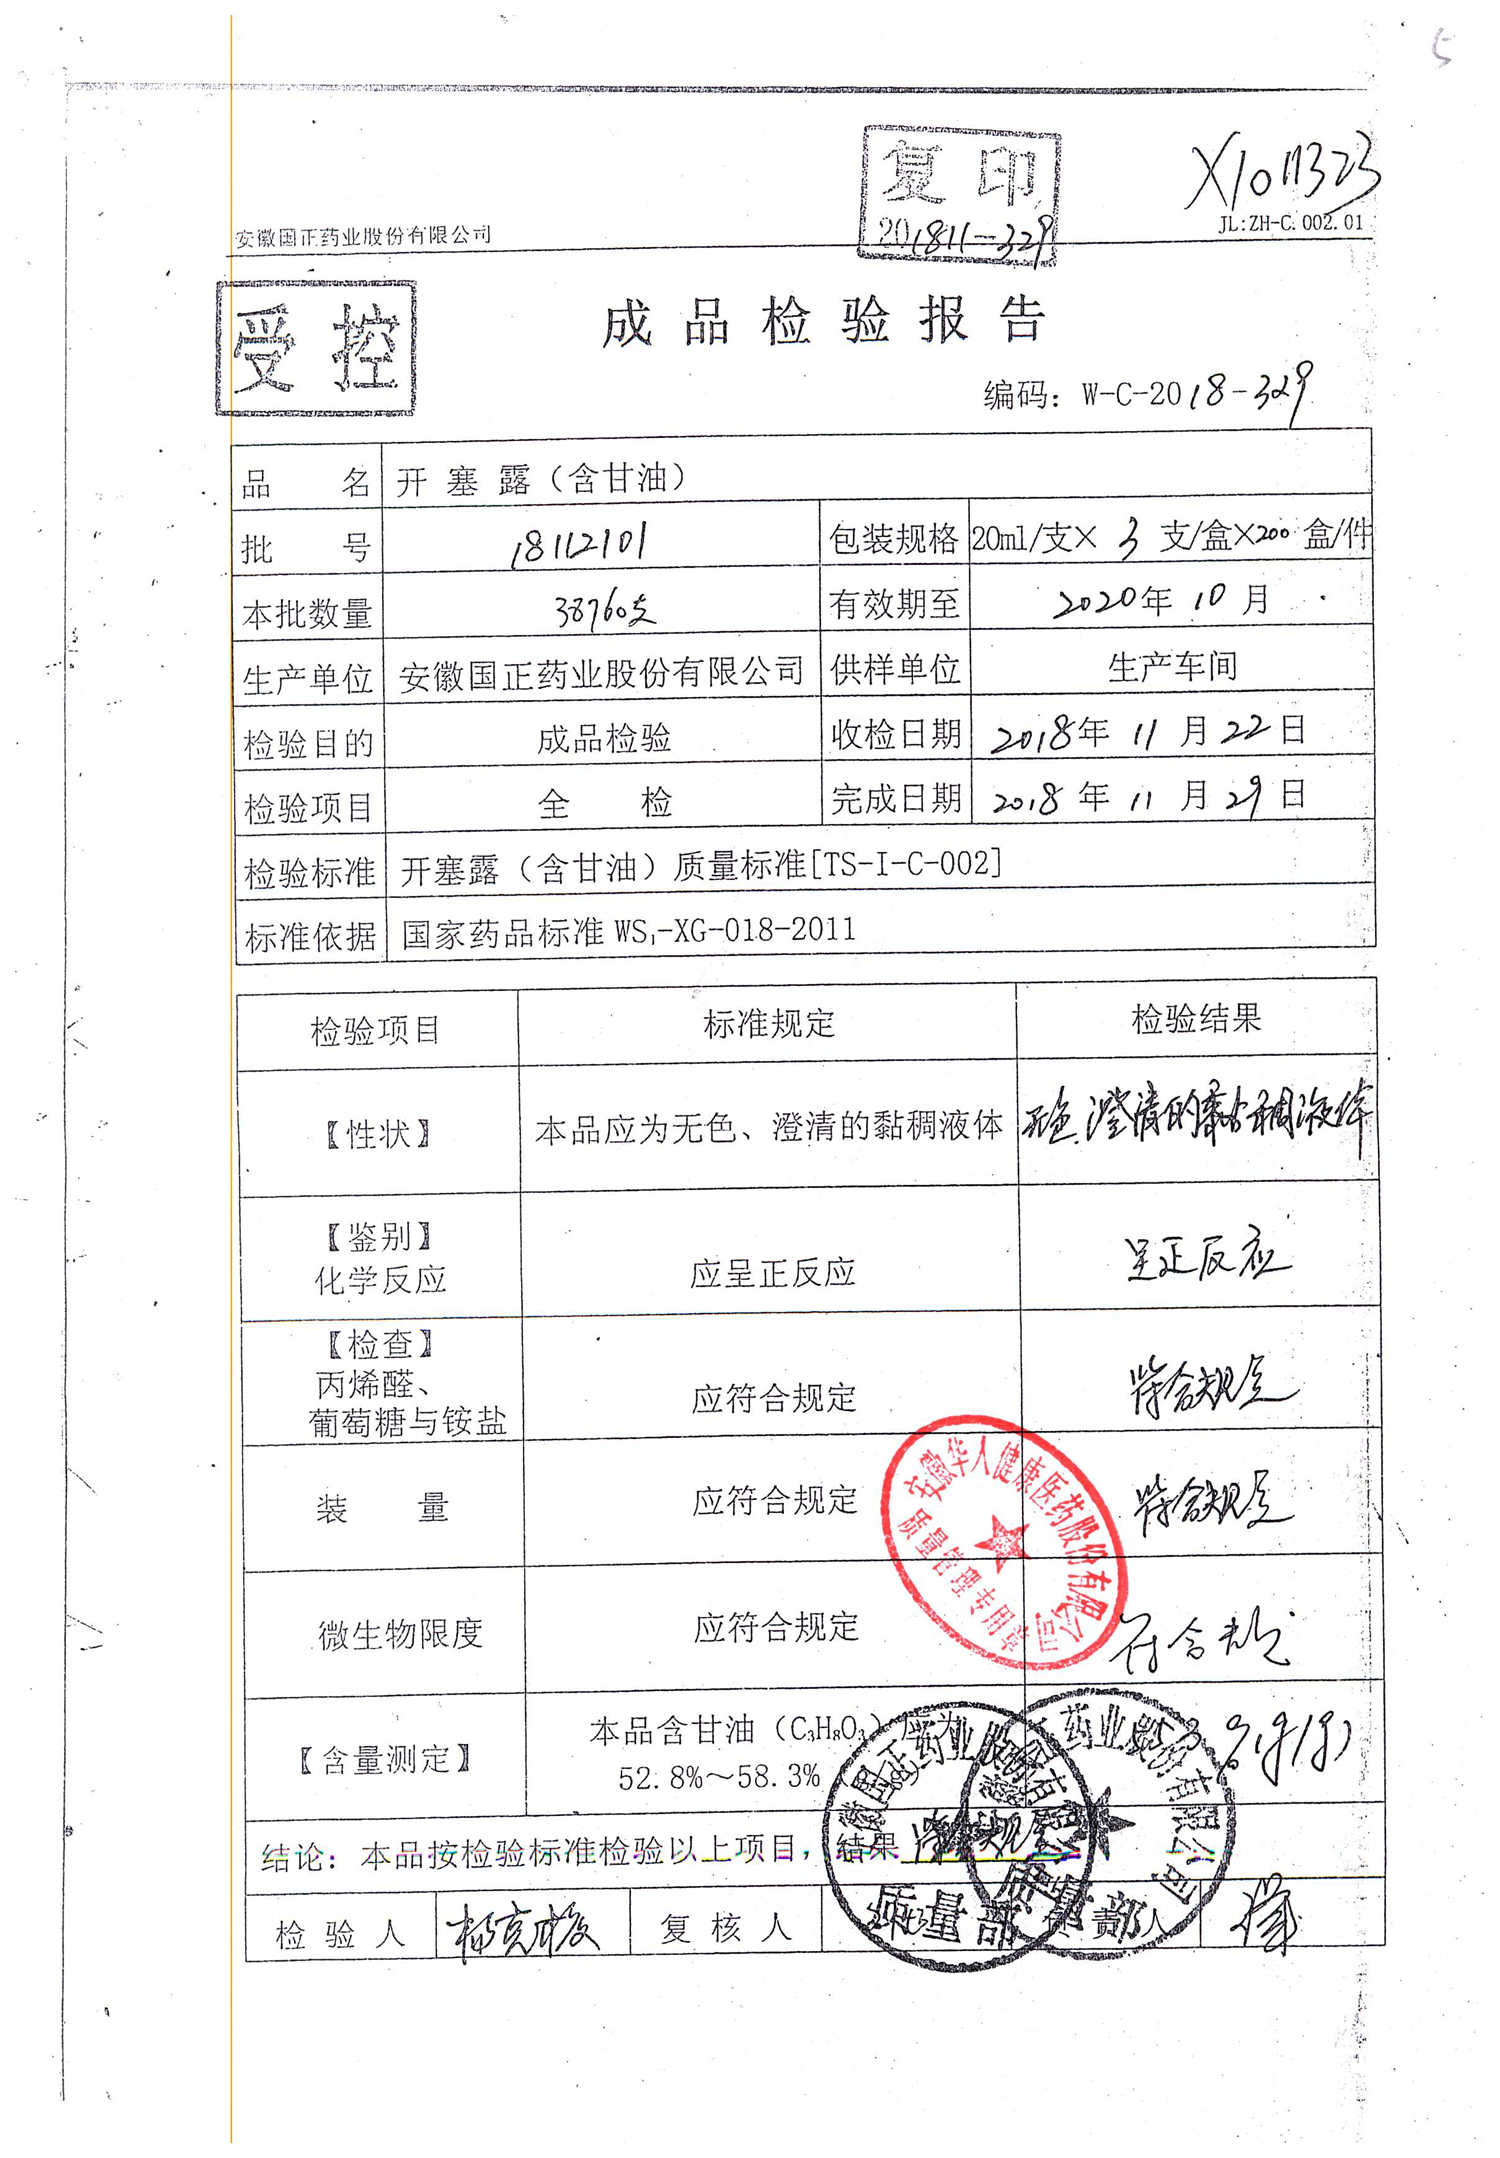 5
复印
201811-329
X1011323
JL:ZH-C.002.01
安徽国正药业股份有限公司
受控
成品检验报告
编码：W-C-2018-329
品 名 开塞露（含甘油）
批 号 18112101 包装规格 20ml/支×3支/盒×200盒/件
本批数量 38760支 有效期至 2020年10月
生产单位 安徽国正药业股份有限公司 供样单位 生产车间
检验目的 成品检验 收检日期 2018年11月22日
检验项目 全 检 完成日期 2018年11月29日
检验标准 开塞露（含甘油）质量标准[TS-I-C-002]
标准依据 国家药品标准WS₁-XG-018-2011
检验项目 标准规定 检验结果
【性状】 本品应为无色、澄清的黏稠液体 无色澄清的黏稠液体
【鉴别】
化学反应 应呈正反应 呈正反应
【检查】
丙烯醛、
葡萄糖与铵盐 应符合规定 符合规定
装 量 应符合规定 符合规定
微生物限度 应符合规定 符合规定
安徽华人健康医药股份有限公司
质量管理专用章
【含量测定】 本品含甘油（C₃H₈O₃）应为
52.8%～58.3%
结论：本品按检验标准检验以上项目，结果 符合规定
安徽国正药业股份有限公司
质量部
药业股份有限公司
质量部
检验人 复核人 负责人